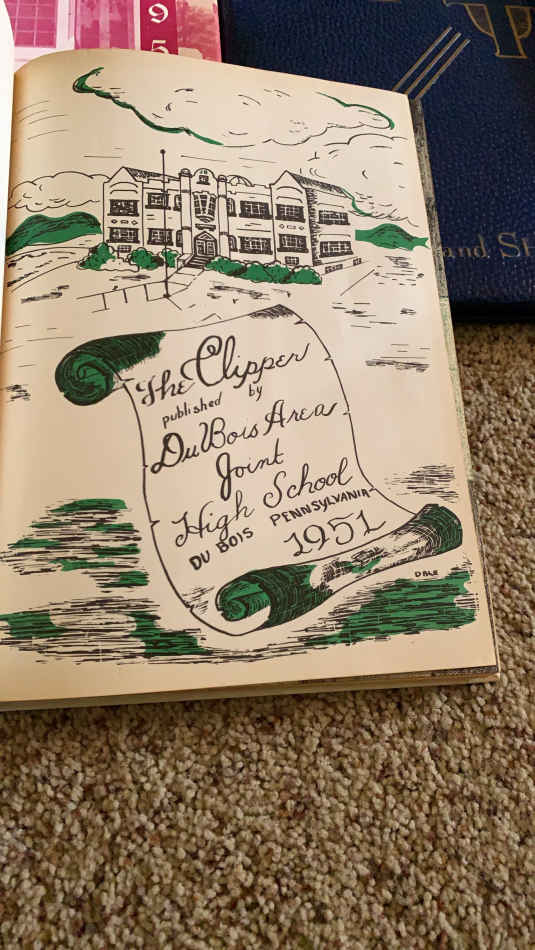 95
and Sh
The Clipper
published by
DuBois Area
Joint
High School
DU BOIS PENNSYLVANIA-
1951
DALE